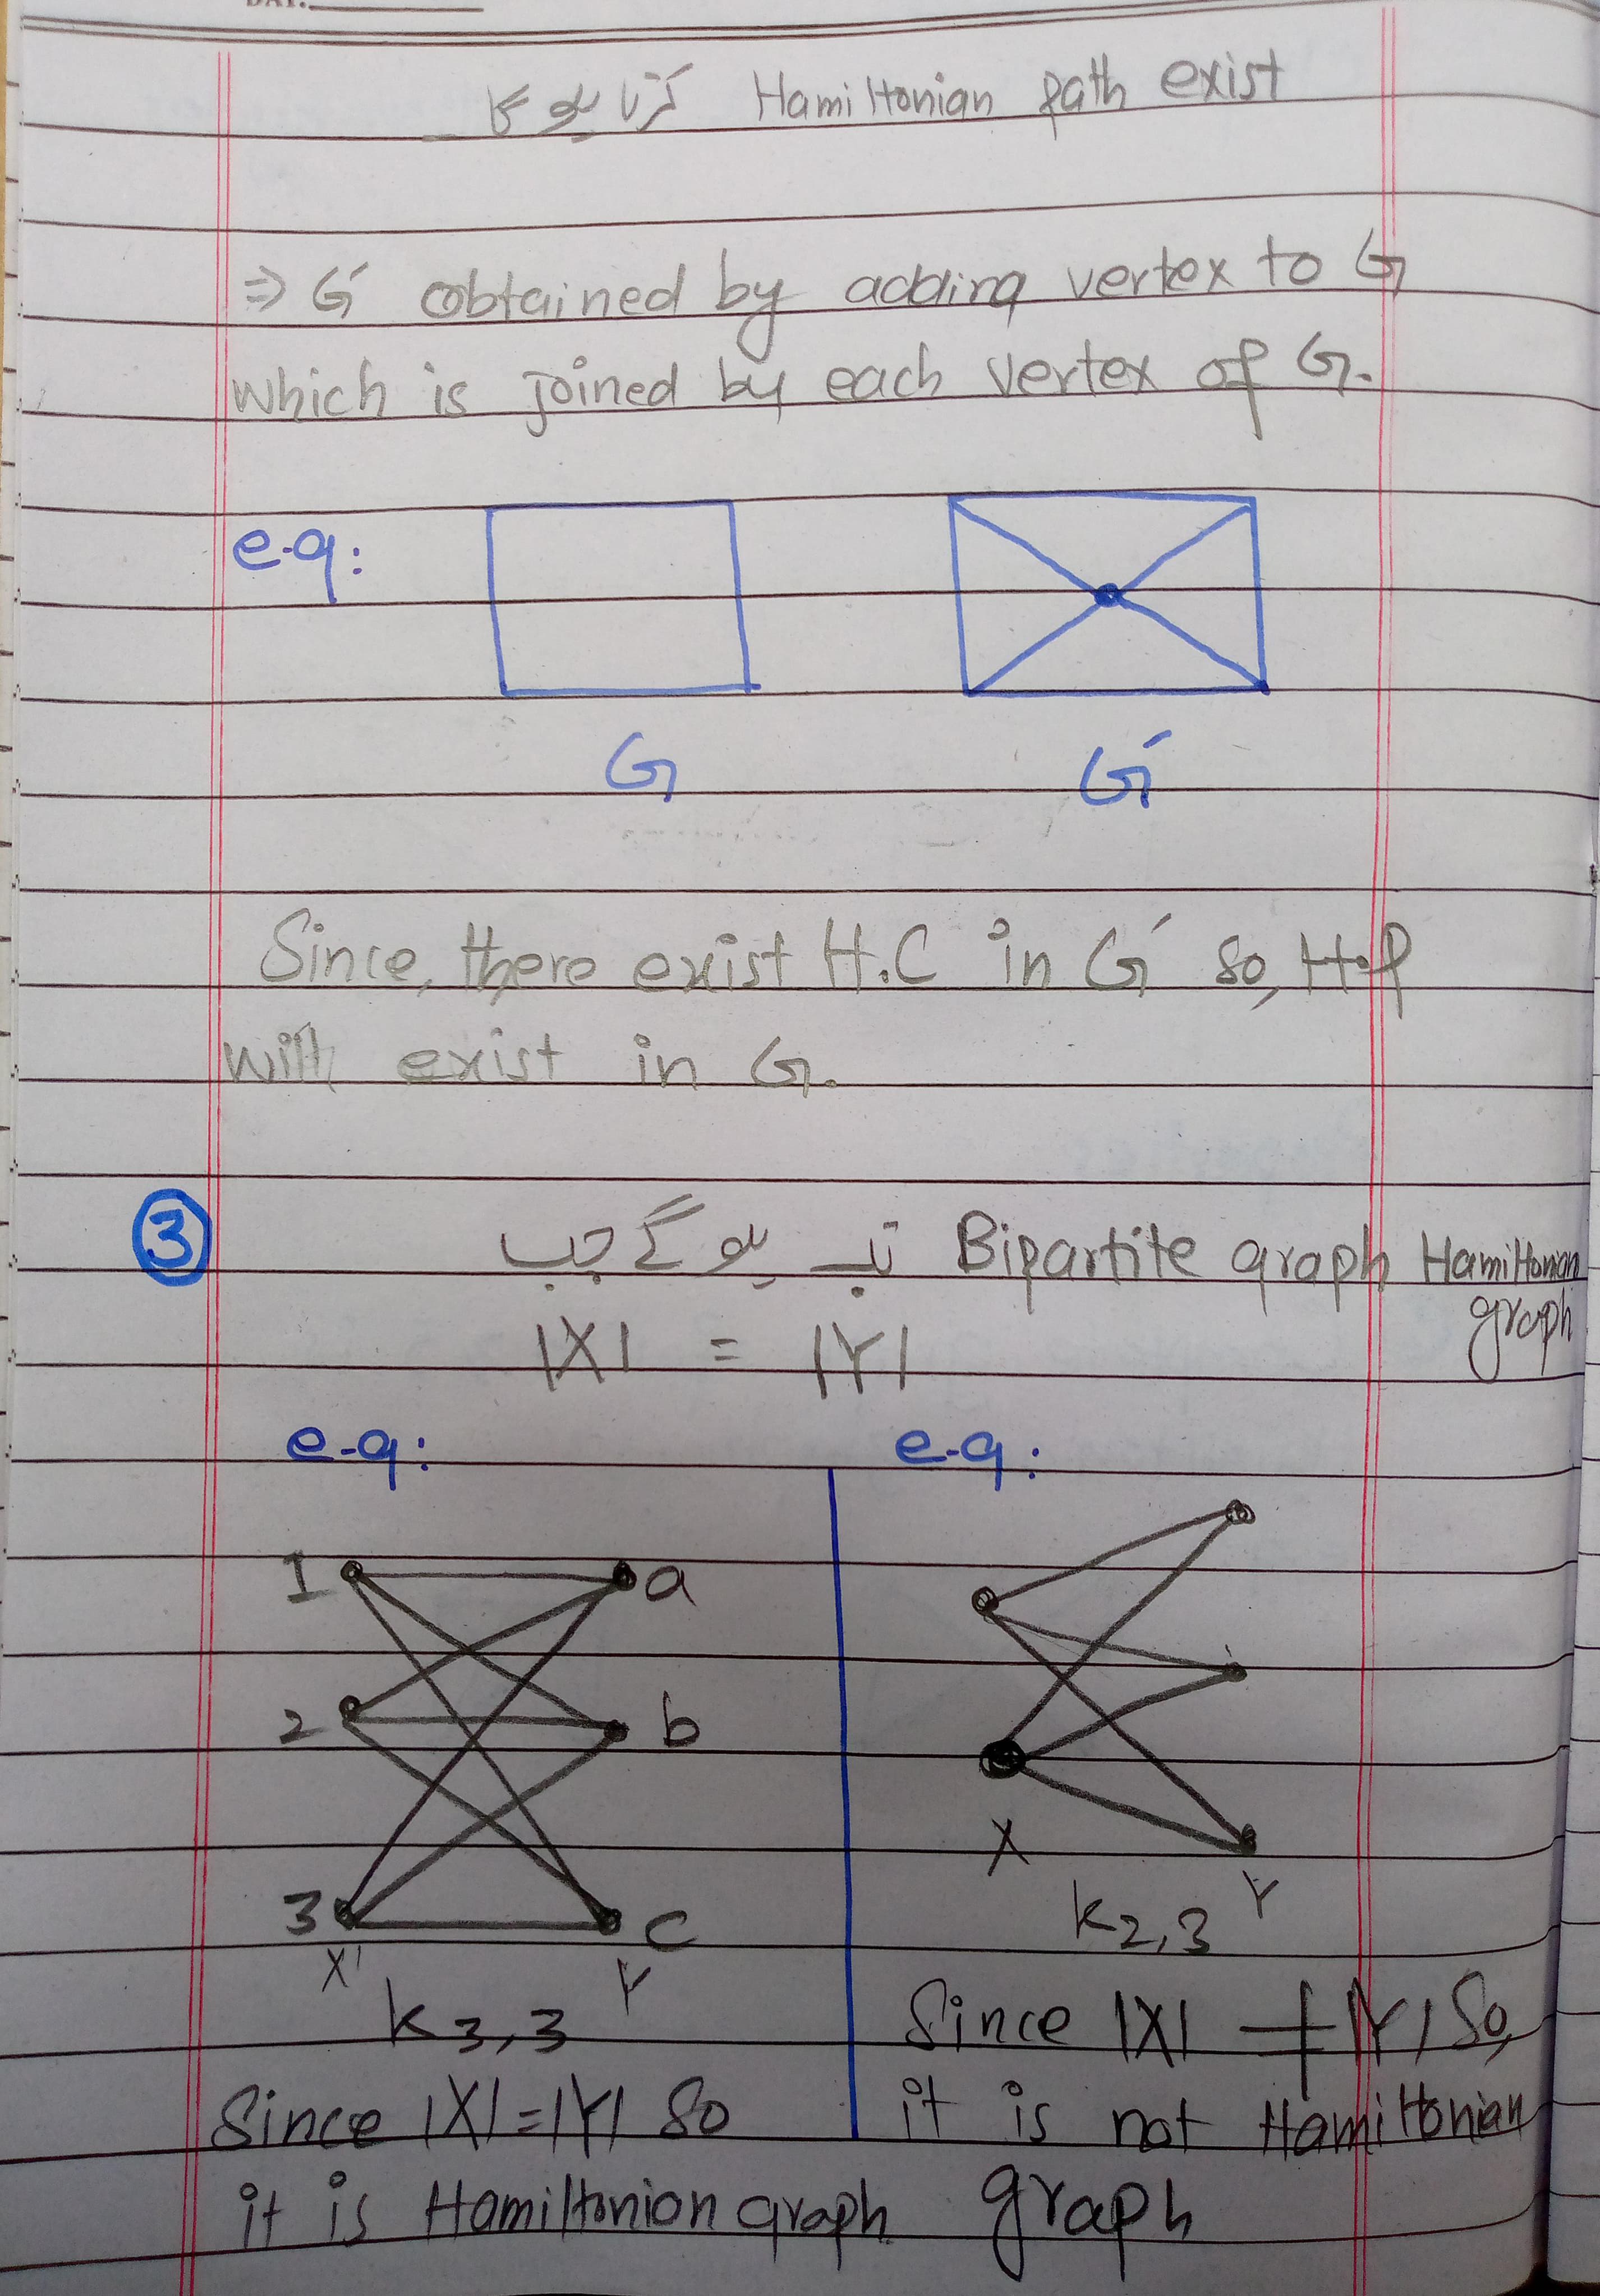 DAY:
کرتا ہو گا Hamiltonian path exist
⇒ G′ obtained by adding vertex to G
which is joined by each vertex of G.
e.g:
G G′
Since, there exist H.C in G′ so, H.P
will exist in G.
③ Bipartite graph Hamiltonian تب ہو گے جب
graph
|X| = |Y|
e.g: e.g:
1 a
2 b
3 c
X Y
K3,3
Since |X| = |Y| So
it is Hamiltonion graph
X Y
K2,3
Since |X| ≠ |Y| So,
it is not Hamiltonian
graph